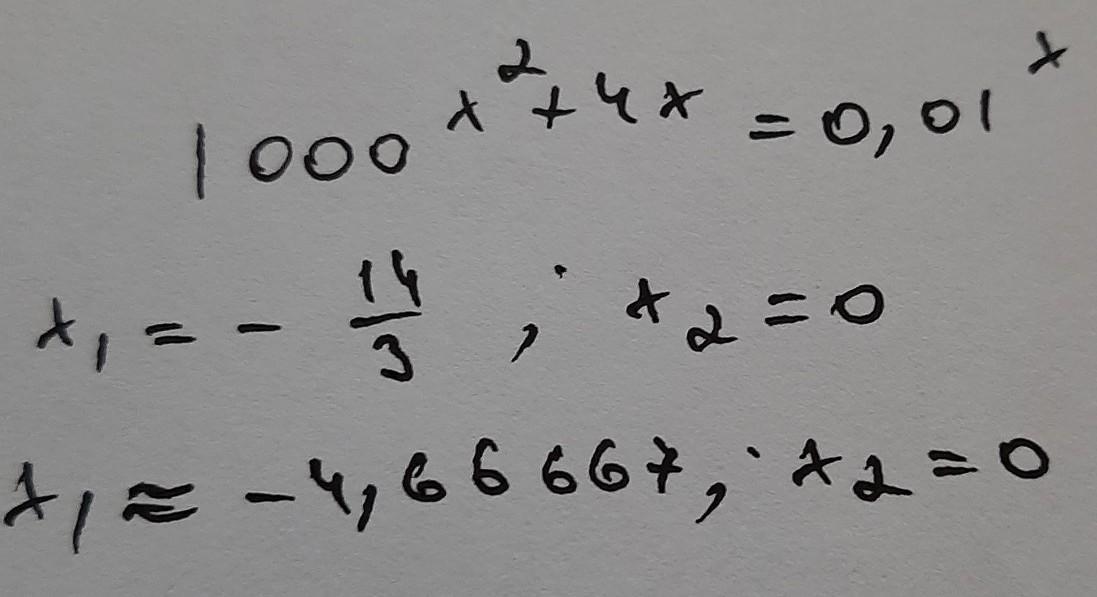 1000^(x²+4x) = 0,01^x
x₁ = - 14/3 ; x₂ = 0
x₁ ≈ -4,66667 ; x₂ = 0